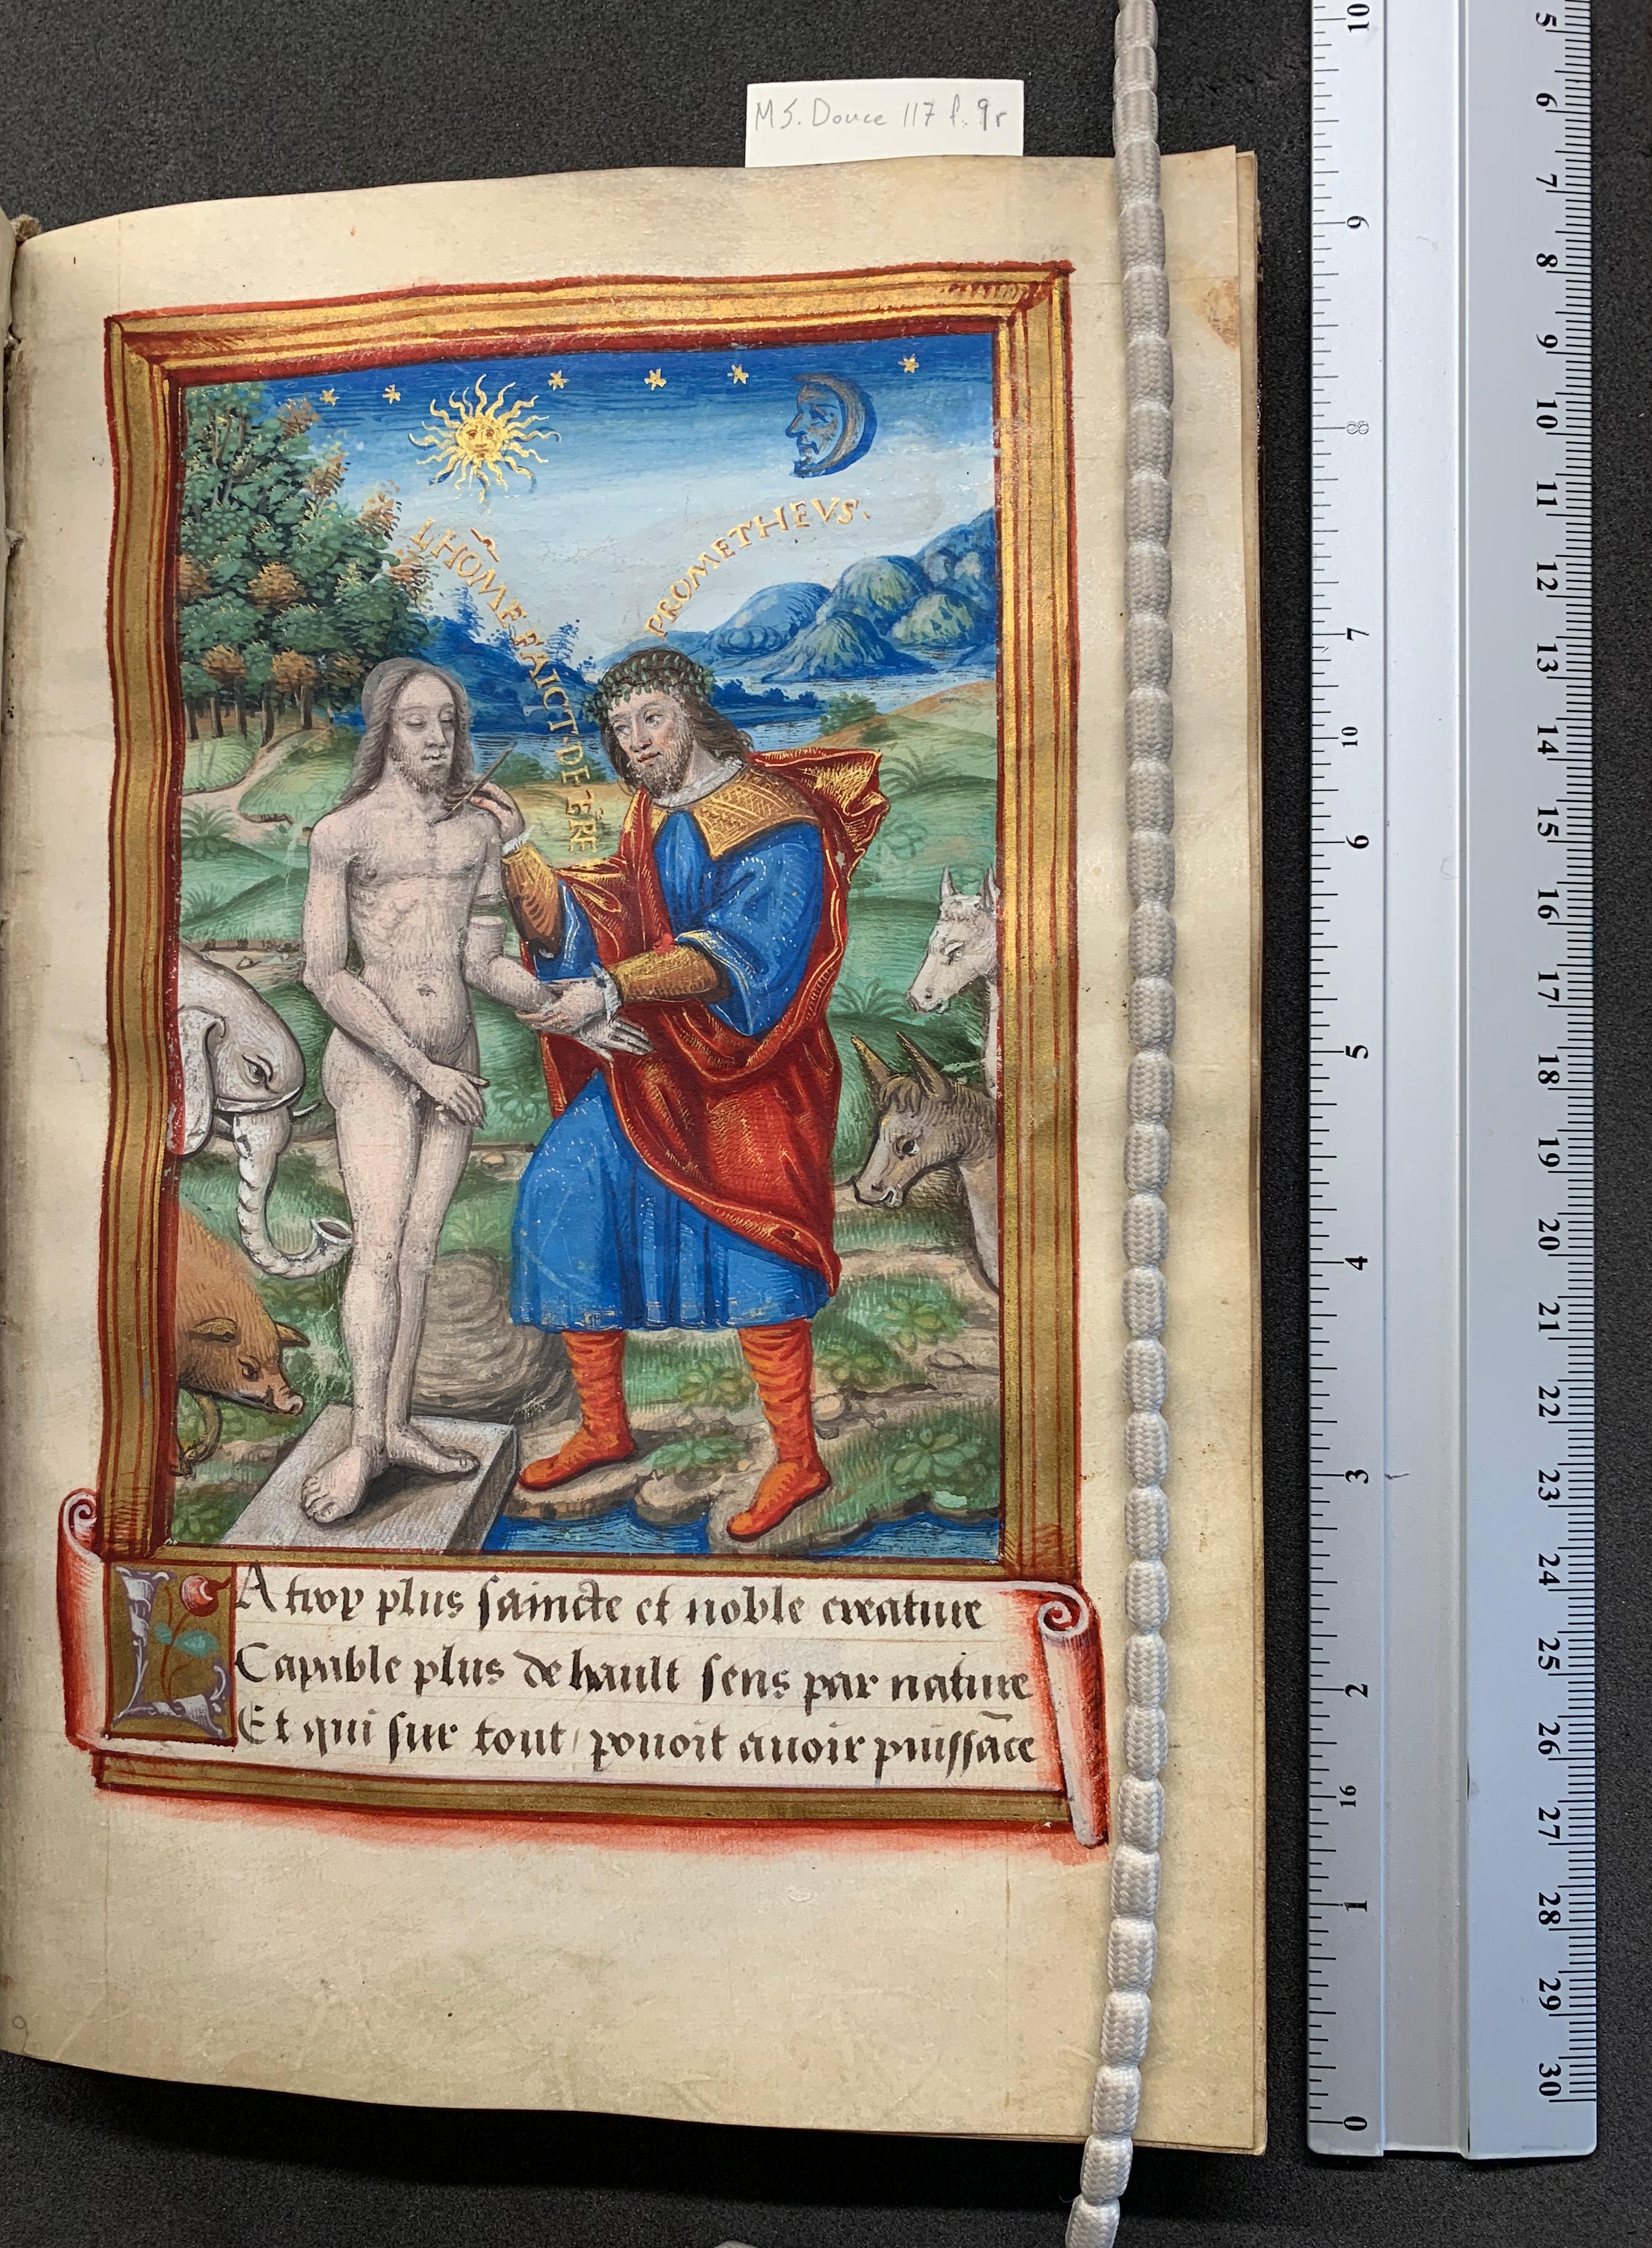 MS. Douce 117 f. 9r
LHŌME FAICT·DE T̄RE
PROMETHEVS.
LA trop plus saincte et noble creature
Capable plus de hault sens par nature
Et qui sur tout / pouoit auoir puissāce
9
10 9 8 7 10 6 5 4 3 2 16 1 0
5 6 7 8 9 10 11 12 13 14 15 16 17 18 19 20 21 22 23 24 25 26 27 28 29 30